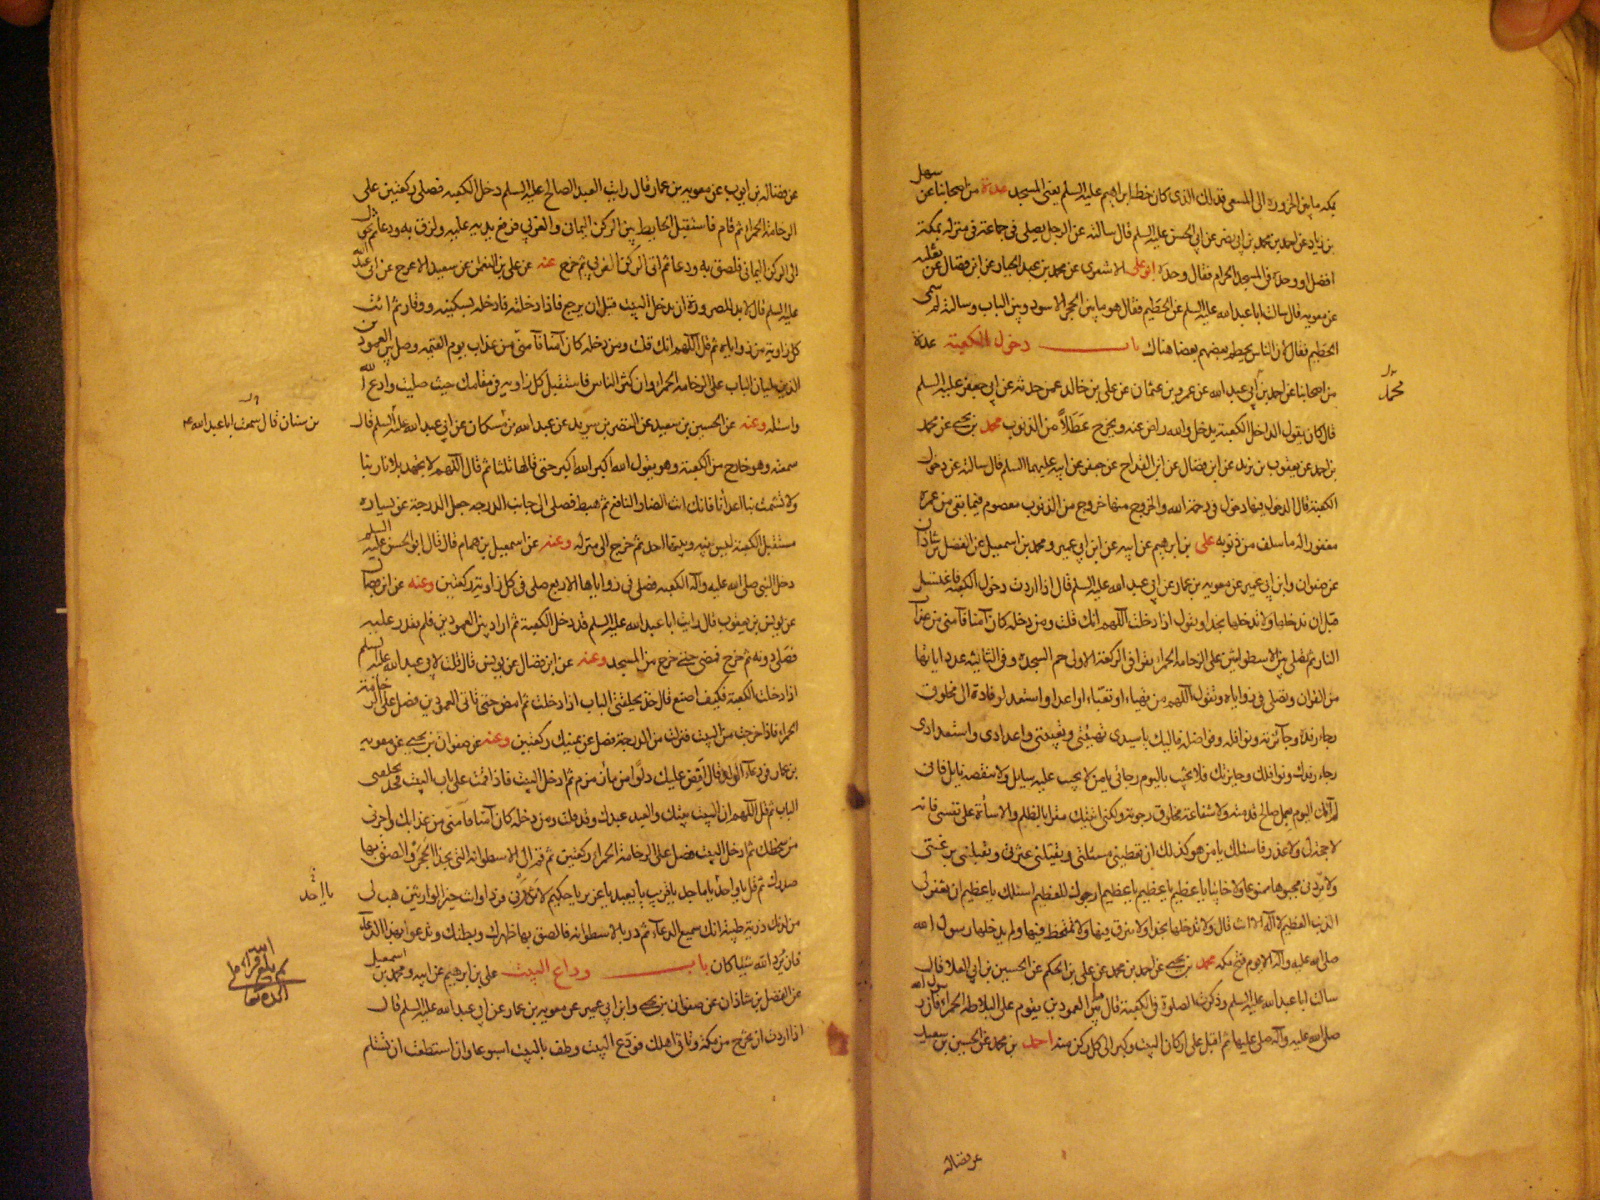 بمكة ما بين الحزورة الى المسعى فذلك الذى كان خط ابراهيم عليه السلم يعنى المسجد عدة من اصحابنا عن سهل
بن زياد عن احمد بن محمد بن ابى نصر عن ابى الحسن عليه السلم قال سالته عن الرجل يصلى فى جماعة فى منزله بمكة
افضل او وحده فى المسجد الحرام فقال وحده ابو على الاشعرى عن محمد بن عبد الجبار عن ابن فضال عن ثعلبه
عن معويه قال سالت ابا عبد الله عليه السلم عن الحطيم فقال هو ما بين الحجر الاسود وبين الباب وسالته لم سمى
الحطيم فقال لان الناس يحطم بعضهم بعضا هناك باب دخول الكعبة عدة
من اصحابنا عن احمد بن ابى عبد الله عن عمرو بن عثمان عن على بن خالد عمن حدثه عن ابى جعفر عليه السلم
محمد
قال كان يقول الداخل الكعبة يدخل والله راض عنه ويخرج عطلا من الذنوب محمد بن يحيى عن محمد
بن احمد عن يعقوب بن يزيد عن ابن فضال عن ابن القداح عن جعفر عن ابيه عليهما السلم قال سالته عن دخول
الكعبة قال الدخول فيها دخول فى رحمة الله والخروج منها خروج من الذنوب معصوم فيما بقى من عمره
مغفور له ما سلف من ذنوبه على بن ابرهيم عن ابيه عن ابن ابى عمير ومحمد بن اسمعيل عن الفضل بن شاذان
عن صفوان وابن ابى عمير عن معويه بن عمار عن ابى عبد الله عليه السلم قال اذا اردت دخول الكعبة فاغتسل
قبل ان تدخلها ولا تدخلها بحذاء وتقول اذا دخلت اللهم انك قلت ومن دخله كان آمنا فآمنى من عذاب
النار ثم تصلى بين الاسطوانتين على الرخامة الحمراء تقرا فى الركعة الاولى حم السجدة وفى الثانية عدد اياتها
من القرآن وتصلى فى زواياه وتقول اللهم من تهيا او تعبا او اعد او استعد لوفادة الى مخلوق
رجاء رفده وجائزته ونوافله وفواضله فاليك يا سيدى تهيئتى وتعبئتى واعدادى واستعدادى
رجاء رفدك ونوافلك وجايزتك فلا تخيب اليوم رجائى يا من لا يخيب عليه سايل ولا ينقصه نايل فانى
لم آتك اليوم بعمل صالح قدمته ولا شفاعة مخلوق رجوته ولكنى اتيتك مقرا بالظلم والاساءة على نفسى فانه
لا حجة لى ولا عذر فاسئلك يا من هو كذلك ان تعطينى مسئلتى وتقيلنى عثرتى وتقبلنى برغبتى
ولا تردنى مجبوها ممنوعا ولا خايبا يا عظيم يا عظيم يا عظيم ارجوك للعظيم اسئلك يا عظيم ان تغفر لى
الذنب العظيم لا اله الا انت قال ولا تدخلها بحذاء ولا تبزق فيها ولا تمتخط فيها ولم يدخلها رسول الله
صلى الله عليه وآله الا يوم فتح مكه محمد بن يحيى عن احمد بن محمد عن على بن الحكم عن الحسين بن ابى العلا قال
سالت ابا عبد الله عليه السلم وذكرت الصلوة فى الكعبة قال بين العمودين يقوم على البلاطة الحمراء فان رسول الله
صلى الله عليه وآله صلى عليها ثم اقبل على اركان البيت وكبر الى كل ركن منه احمد بن محمد عن الحسين بن سعيد
عن فضاله
عن فضاله بن ايوب عن معويه بن عمار قال رايت العبد الصالح عليه السلم دخل الكعبة فصلى ركعتين على
الرخامة الحمراء ثم قام فاستقبل الحايط بين الركن اليمانى والغربى فرفع يديه عليه ولزق به ودعا ثم تحول
الى الركن اليمانى فلصق به ودعا ثم اتى الركن الغربى ثم خرج عنه عن على بن النعمان عن سعيد الاعرج عن ابى عبد الله
عليه السلم قال لا بد للصرورة ان يدخل البيت قبل ان يرجع فاذا دخلته فادخله بسكينه ووقار ثم ائت
كل زاوية من زواياه ثم قل اللهم انك قلت ومن دخله كان آمنا فآمنى من عذاب يوم القيمة وصل بين العمودين
الذين يليان الباب على الرخامة الحمراء وان كثر الناس فاستقبل كل زاوية فى مقامك حيث صليت وادع الله
واسئله وعنه عن الحسين بن سعيد عن النضر بن سويد عن عبد الله بن مسكان عن ابى عبد الله عليه السلم قال
بن سنان قال سمعت ابا عبد الله ع
سمعته وهو خارج من الكعبة وهو يقول الله اكبر الله اكبر حتى قالها ثلثا ثم قال اللهم لا تجهد بلاءنا ربنا
ولا تشمت بنا اعدائنا فانك انت الضار النافع ثم هبط فصلى الى جانب الدرجه جعل الدرجة عن يساره
مستقبل الكعبة ليس بينه وبينها احد ثم خرج الى منزله وعنه عن اسمعيل بن همام قال قال ابو الحسن عليه السلم
دخل النبى صلى الله عليه وآله الكعبه فصلى فى زواياها الاربع صلى فى كل زاوية ركعتين وعنه عن ابن فضال
عن يونس بن يعقوب قال رايت ابا عبد الله عليه السلم قد دخل الكعبة ثم اراد بين العمودين فلم يقدر عليه
فصلى دونه ثم خرج فمضى حتى خرج من المسجد وعنه عن ابن فضال عن يونس قال قلت لابى عبد الله عليه السلم
اذا دخلت الكعبة فكيف اصنع قال خذ بحلقتى الباب اذا دخلت ثم امض حتى تاتى العمودين فصل على الرخامة
الحمراء فاذا خرجت من البيت فنزلت من الدرجة فصل عن يمينك ركعتين وعنه عن صفوان بن يحيى عن معويه
بن عمار فى دعاء الولد قال افض عليك دلوا من ماء زمزم ثم ادخل البيت فاذا قمت على باب البيت فخذ بحلقه
الباب ثم قل اللهم ان البيت بيتك والعبد عبدك وقد قلت ومن دخله كان آمنا فآمنى من عذابك واجرنى
من سخطك ثم ادخل البيت فصل على الرخامة الحمراء ركعتين ثم قم الى الاسطوانة التى بحذاء الحجر والصق بها
صدرك ثم قل يا واحد يا ماجد يا قريب يا بعيد يا عزيز يا حكيم لا تذرنى فردا وانت خير الوارثين هب لى
يا احد
من لدنك ذرية طيبة انك سميع الدعاء ثم در بالاسطوانه فالصق بها ظهرك وبطنك وتدعو بهذا الدعاء
فان يرد الله شيئا كان باب وداع البيت على بن ابرهيم عن ابيه ومحمد بن اسمعيل
عن الفضل بن شاذان عن صفوان بن يحيى وابن ابى عمير عن معويه بن عمار عن ابى عبد الله عليه السلم قال
اذا اردت ان تخرج من مكة وتاتى اهلك فودع البيت وطف بالبيت اسبوعا وان استطعت ان تستلم